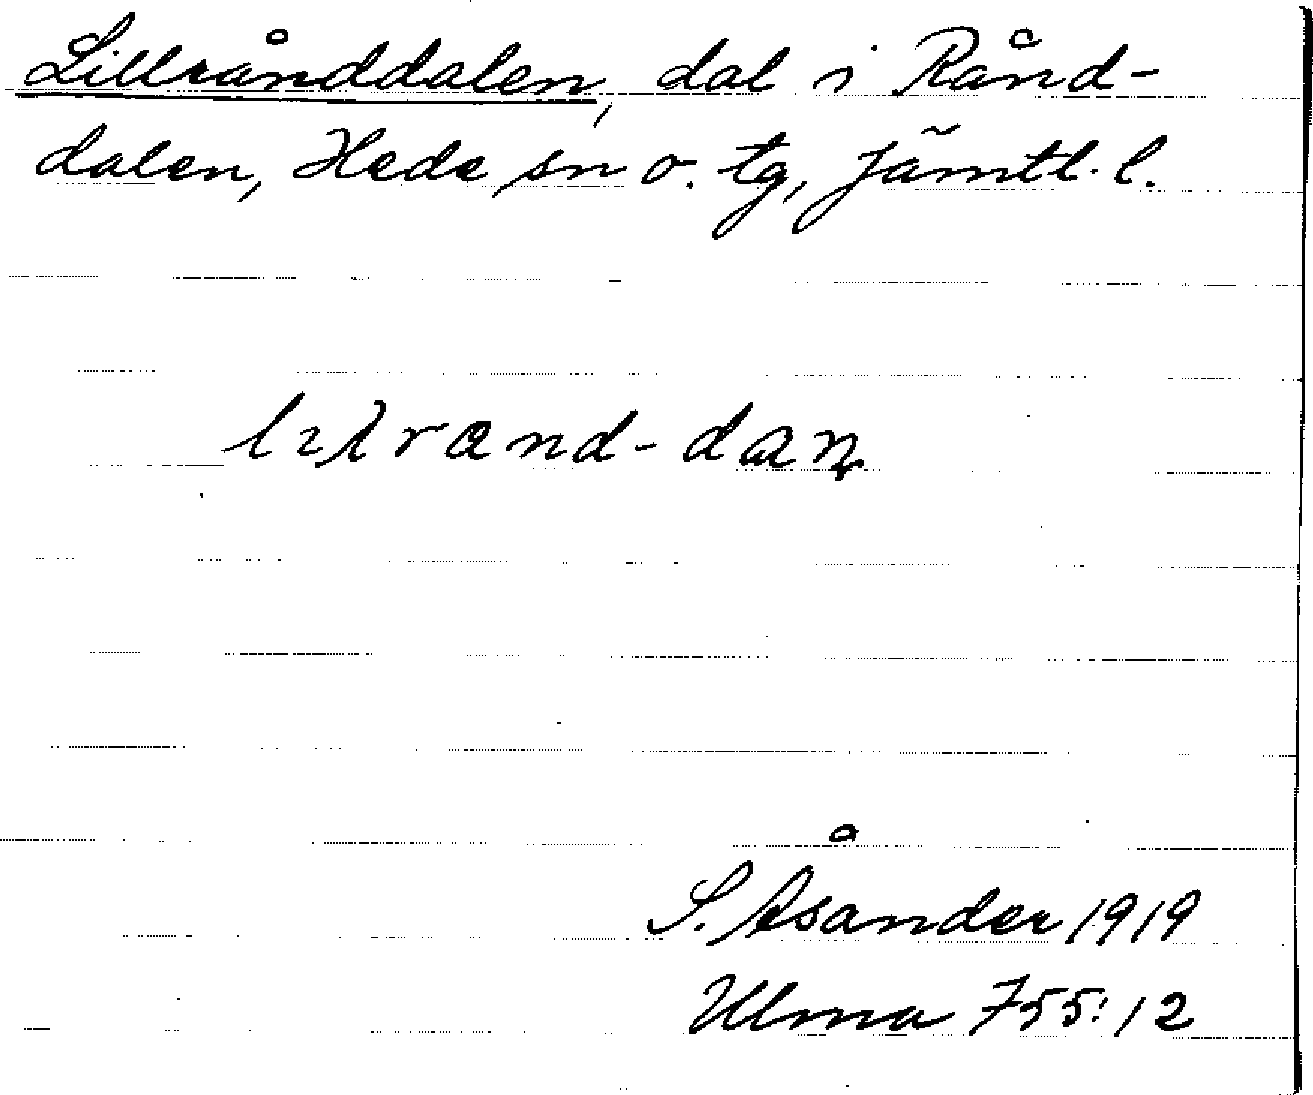 Lillrånddalen, dal i Rånd-
dalen, Hede sn o. tg, Jämtl. l.
S. Åsander 1919
Ulma 755:12